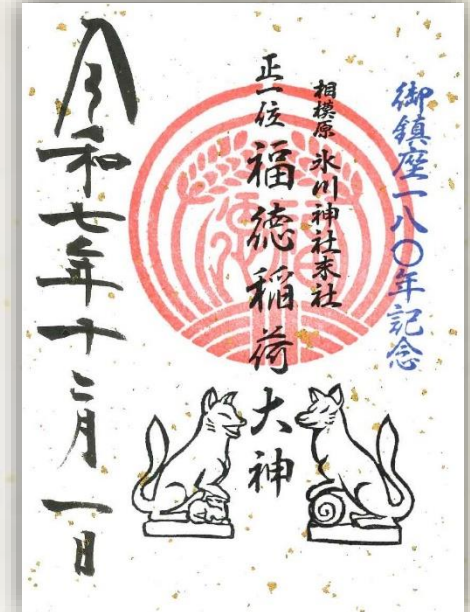 御鎮座一八〇年記念
相模原 氷川神社末社
正一位 福徳稲荷大神
令和七年十二月一日